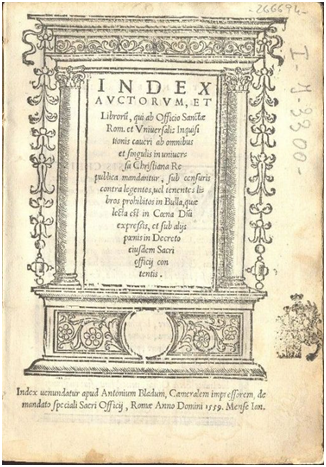 266694-
I-g-3300
INDEX
AVCTORVM, ET
Librorũ, qui ab Officio Sanctæ
Rom. et Vniuersalis Inquisi
tionis caueri ab omnibus
et singulis in uniuer
sa Christiana Re
publica mandantur, sub censuris
contra legentes, uel tenentes li
bros prohibitos in Bulla, quæ
lecta est in Cœna Dñi
expressis, et sub alijs
pœnis in Decreto
eiusdem Sacri
officij con
tentis.
Index uenundatur apud Antonium Bladum, Cameralem impressorem, de
mandato speciali Sacri Officij, Romæ Anno Domini 1559. Mense Ian.